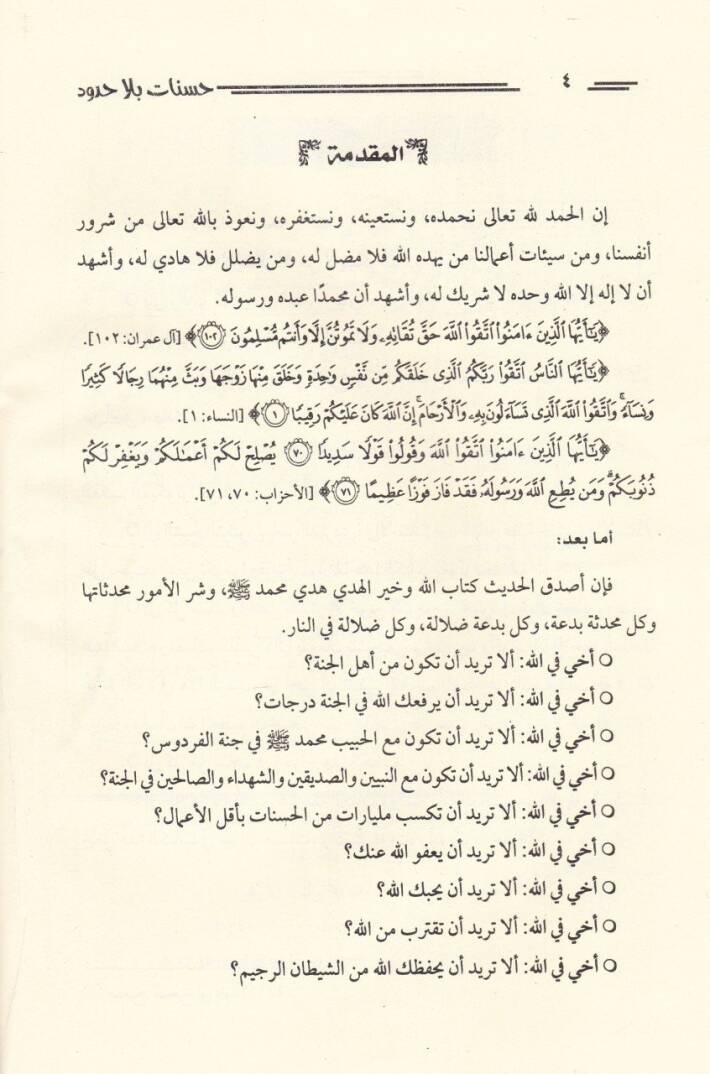 ٤ حسنات بلا حدود
المقدمة
إن الحمد لله تعالى نحمده، ونستعينه، ونستغفره، ونعوذ بالله تعالى من شرور
أنفسنا، ومن سيئات أعمالنا من يهده الله فلا مضل له، ومن يضلل فلا هادي له، وأشهد
أن لا إله إلا الله وحده لا شريك له، وأشهد أن محمدًا عبده ورسوله.
﴿يَٰٓأَيُّهَا ٱلَّذِينَ ءَامَنُوا۟ ٱتَّقُوا۟ ٱللَّهَ حَقَّ تُقَاتِهِۦ وَلَا تَمُوتُنَّ إِلَّا وَأَنتُم مُّسْلِمُونَ ١٠٢﴾ [آل عمران: ١٠٢].
﴿يَٰٓأَيُّهَا ٱلنَّاسُ ٱتَّقُوا۟ رَبَّكُمُ ٱلَّذِى خَلَقَكُم مِّن نَّفْسٍ وَٰحِدَةٍ وَخَلَقَ مِنْهَا زَوْجَهَا وَبَثَّ مِنْهُمَا رِجَالًا كَثِيرًا
وَنِسَآءً ۚ وَٱتَّقُوا۟ ٱللَّهَ ٱلَّذِى تَسَآءَلُونَ بِهِۦ وَٱلْأَرْحَامَ ۚ إِنَّ ٱللَّهَ كَانَ عَلَيْكُمْ رَقِيبًا ١﴾ [النساء: ١].
﴿يَٰٓأَيُّهَا ٱلَّذِينَ ءَامَنُوا۟ ٱتَّقُوا۟ ٱللَّهَ وَقُولُوا۟ قَوْلًا سَدِيدًا ٧٠ يُصْلِحْ لَكُمْ أَعْمَٰلَكُمْ وَيَغْفِرْ لَكُمْ
ذُنُوبَكُمْ ۗ وَمَن يُطِعِ ٱللَّهَ وَرَسُولَهُۥ فَقَدْ فَازَ فَوْزًا عَظِيمًا ٧١﴾ [الأحزاب: ٧٠، ٧١].
أما بعد:
فإن أصدق الحديث كتاب الله وخير الهدي هدي محمد ﷺ، وشر الأمور محدثاتها
وكل محدثة بدعة، وكل بدعة ضلالة، وكل ضلالة في النار.
○ أخي في الله: ألا تريد أن تكون من أهل الجنة؟
○ أخي في الله: ألا تريد أن يرفعك الله في الجنة درجات؟
○ أخي في الله: ألا تريد أن تكون مع الحبيب محمد ﷺ في جنة الفردوس؟
○ أخي في الله: ألا تريد أن تكون مع النبيين والصديقين والشهداء والصالحين في الجنة؟
○ أخي في الله: ألا تريد أن تكسب مليارات من الحسنات بأقل الأعمال؟
○ أخي في الله: ألا تريد أن يعفو الله عنك؟
○ أخي في الله: ألا تريد أن يحبك الله؟
○ أخي في الله: ألا تريد أن تقترب من الله؟
○ أخي في الله: ألا تريد أن يحفظك الله من الشيطان الرجيم؟